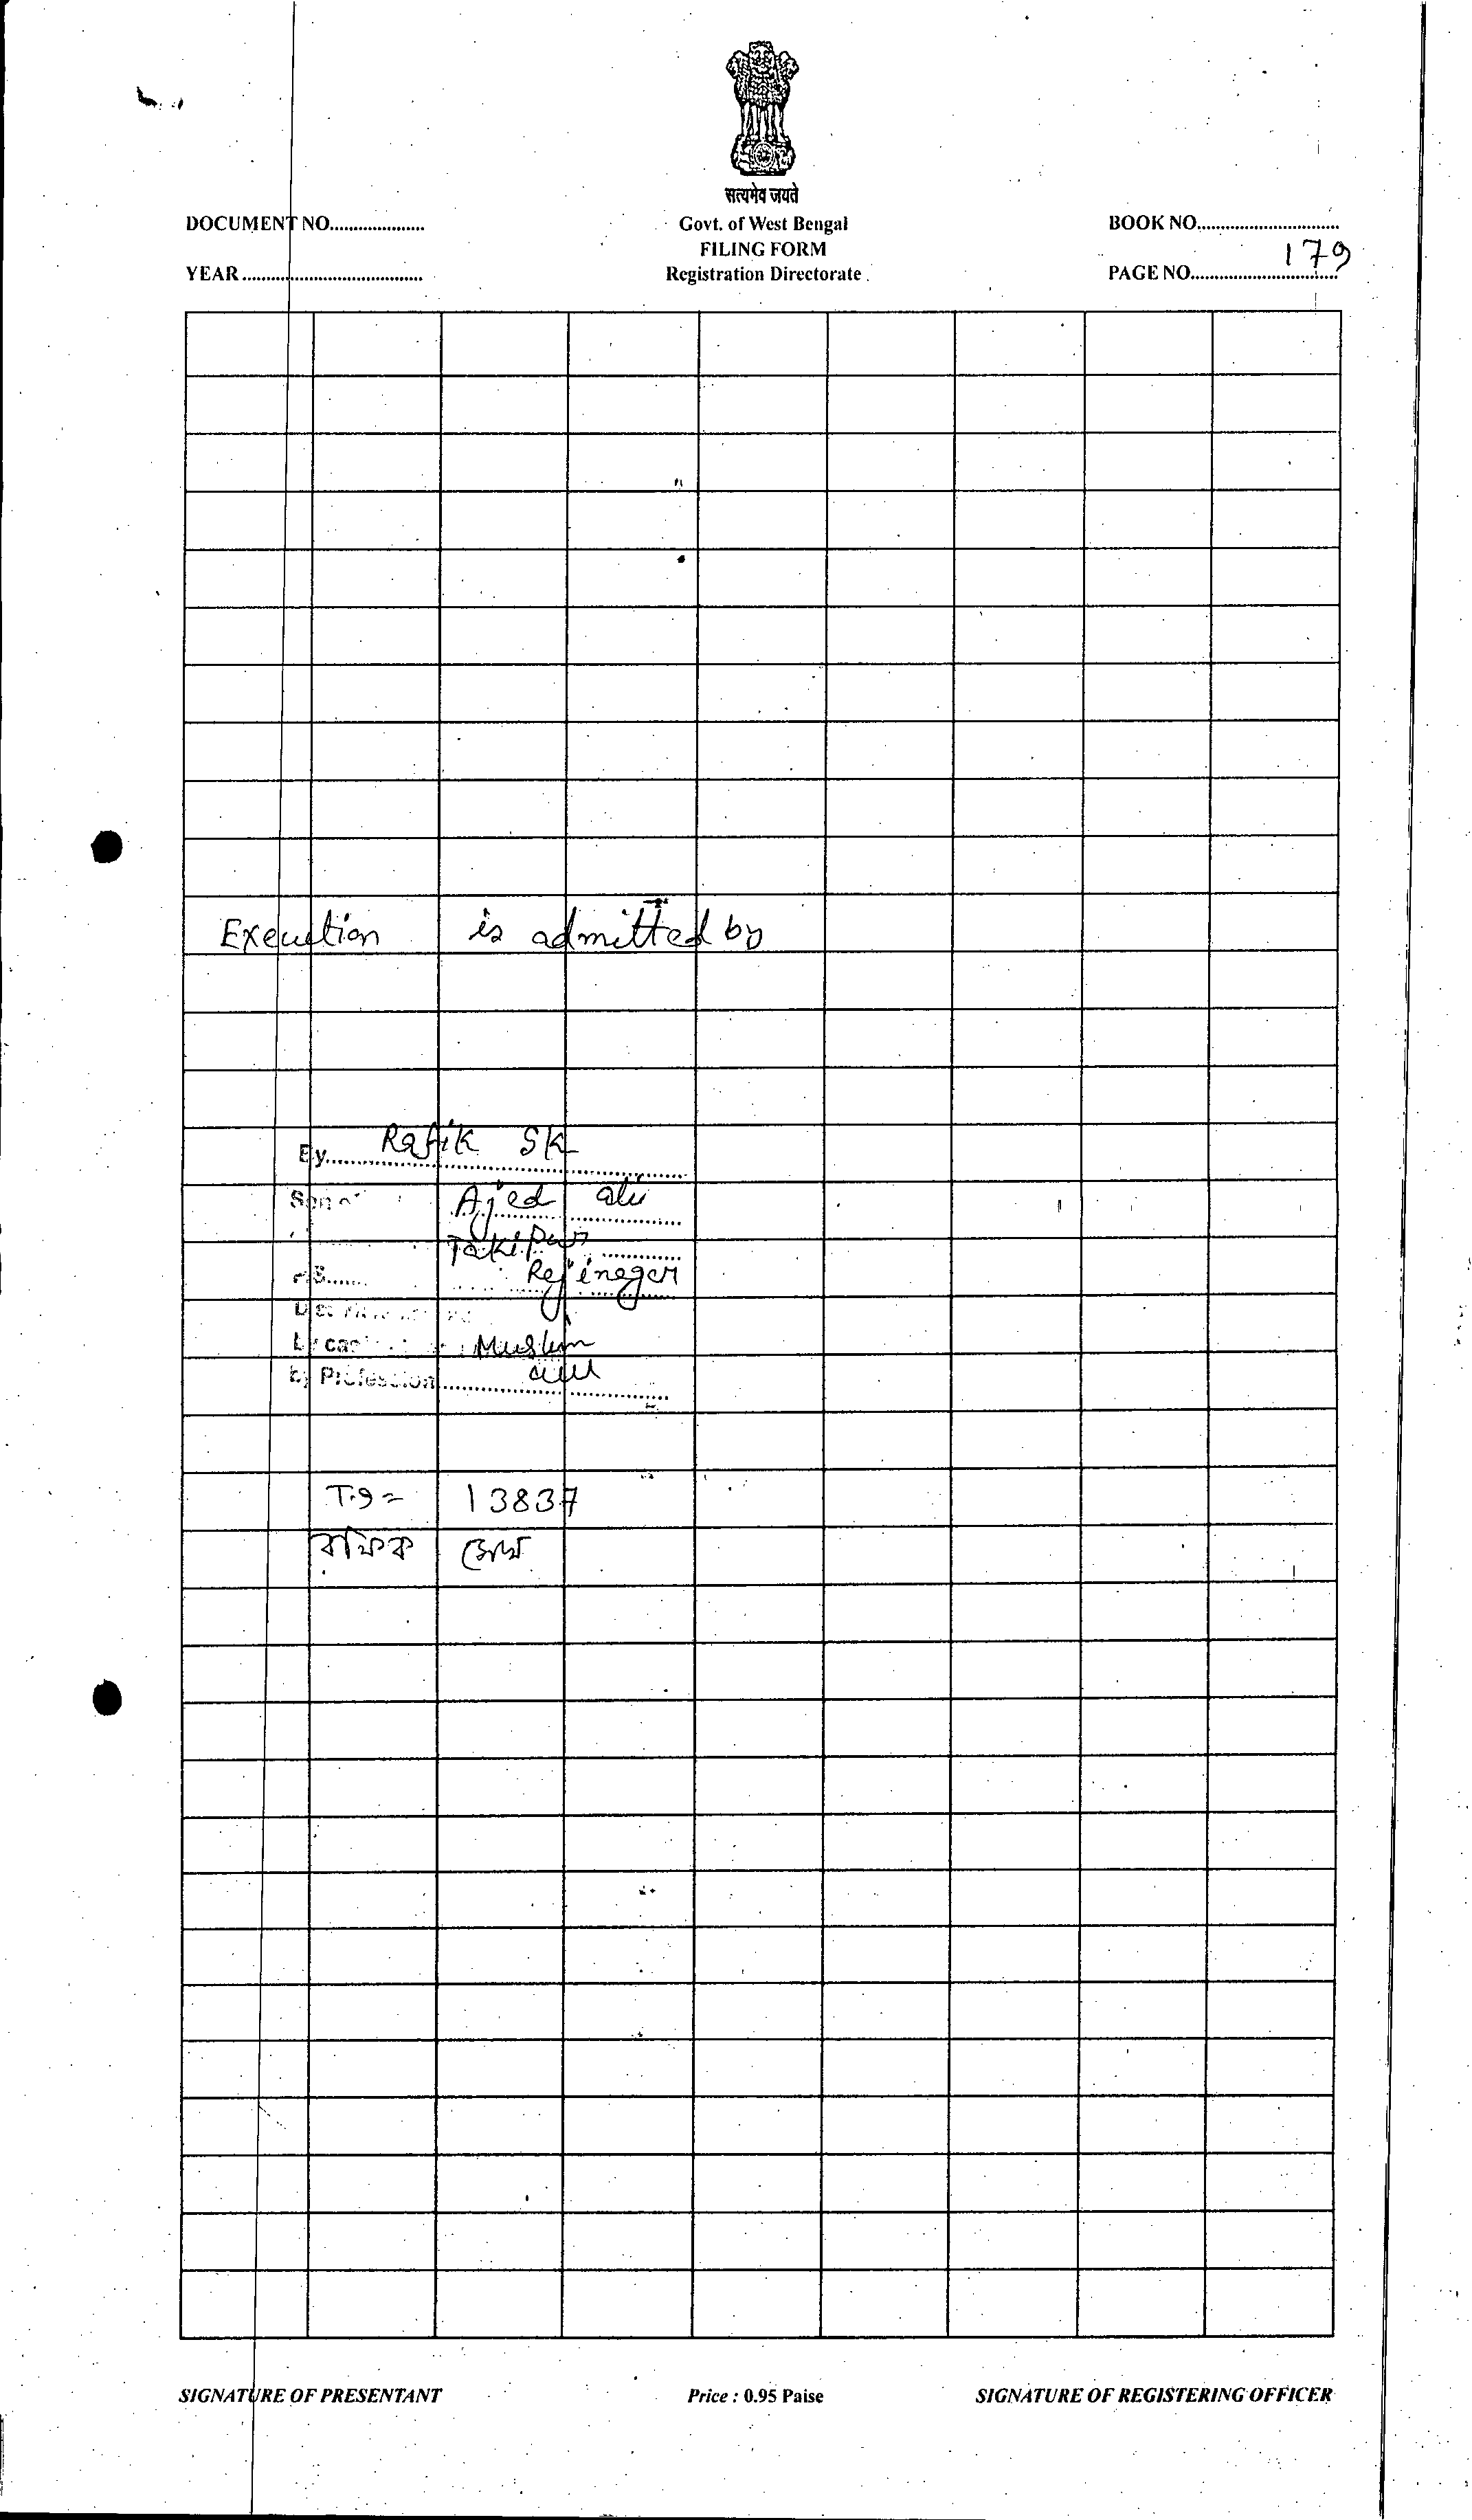 सत्यमेव जयते
DOCUMENT NO.................... Govt. of West Bengal BOOK NO..............................
FILING FORM
YEAR...................................... Registration Directorate PAGE NO.............................. 179
Execution is admitted by
By Rafik SK
Son of Ajed ali
Takipur
P.S...... Rejinagar
by cas Muslim
by Profession
T.g = 13837
রফিক সেখ
SIGNATURE OF PRESENTANT Price : 0.95 Paise SIGNATURE OF REGISTERING OFFICER